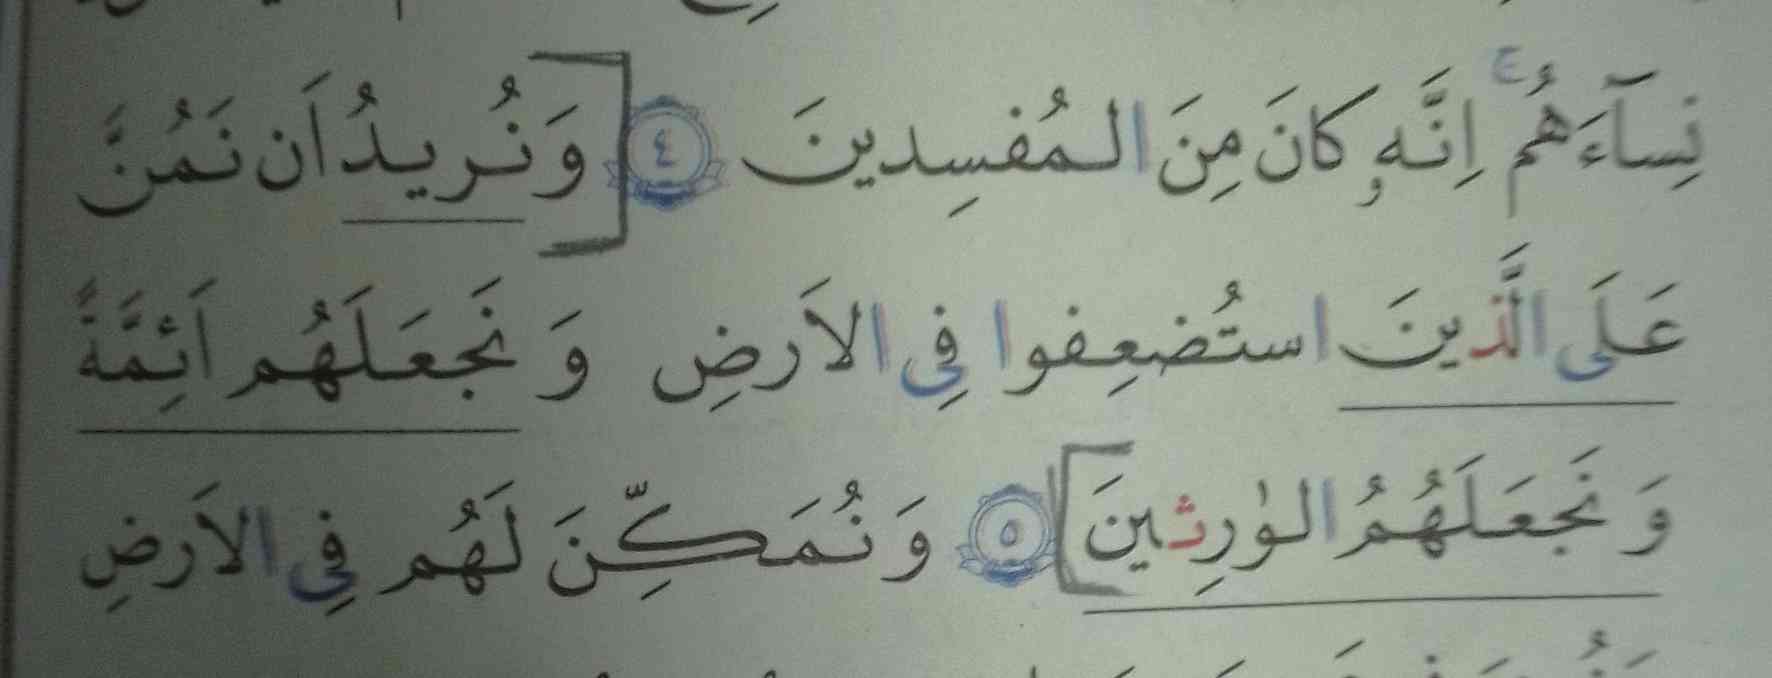 نِسآءَهُم ۚ اِنَّهو كانَ مِنَ المُفسِدينَ ٤ وَنُريدُ اَن نَمُنَّ
عَلَى الَّذينَ استُضعِفوا فِى الاَرضِ وَ نَجعَلَهُم اَئِمَّةً
وَ نَجعَلَهُمُ الوٰرِثينَ ٥ وَ نُمَكِّنَ لَهُم فِى الاَرضِ